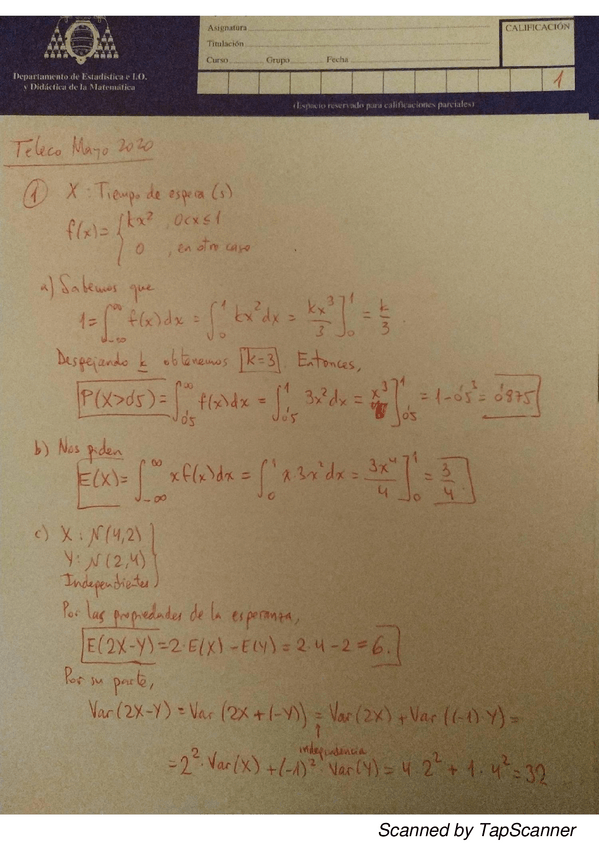 Asignatura
CALIFICACIÓN
Titulación
Curso Grupo Fecha
Departamento de Estadística e I.O.
y Didáctica de la Matemática
1
(Espacio reservado para calificaciones parciales)
Teleco Mayo 2020
① X: Tiempo de espera (s)
f(x) = { kx², 0<x≤1
0, en otro caso
a) Sabemos que
1 = ∫_{-∞}^{∞} f(x)dx = ∫_0^1 kx²dx = kx³/3 ]_0^1 = k/3.
Despejando k obtenemos k=3. Entonces,
P(X>0'5) = ∫_{0'5}^{∞} f(x)dx = ∫_{0'5}^1 3x²dx = x³ ]_{0'5}^1 = 1-0'5³ = 0'875
b) Nos piden
E(X) = ∫_{-∞}^{∞} xf(x)dx = ∫_0^1 x·3x²dx = 3x⁴/4 ]_0^1 = 3/4.
c) X: N(4,2)
Y: N(2,4)
Independientes
Por las propiedades de la esperanza,
E(2X-Y) = 2·E(X) - E(Y) = 2·4 - 2 = 6.
Por su parte,
Var(2X-Y) = Var(2X+(-Y)) = Var(2X) + Var((-1)·Y) =
↑
independencia
= 2²·Var(X) + (-1)²·Var(Y) = 4·2² + 1·4² = 32
Scanned by TapScanner